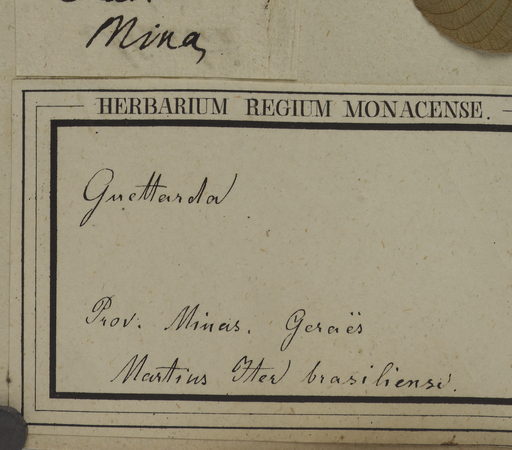 Mina,
HERBARIUM REGIUM MONACENSE.
Guettarda
Prov. Minas. Geraës
Martius Iter brasiliense.